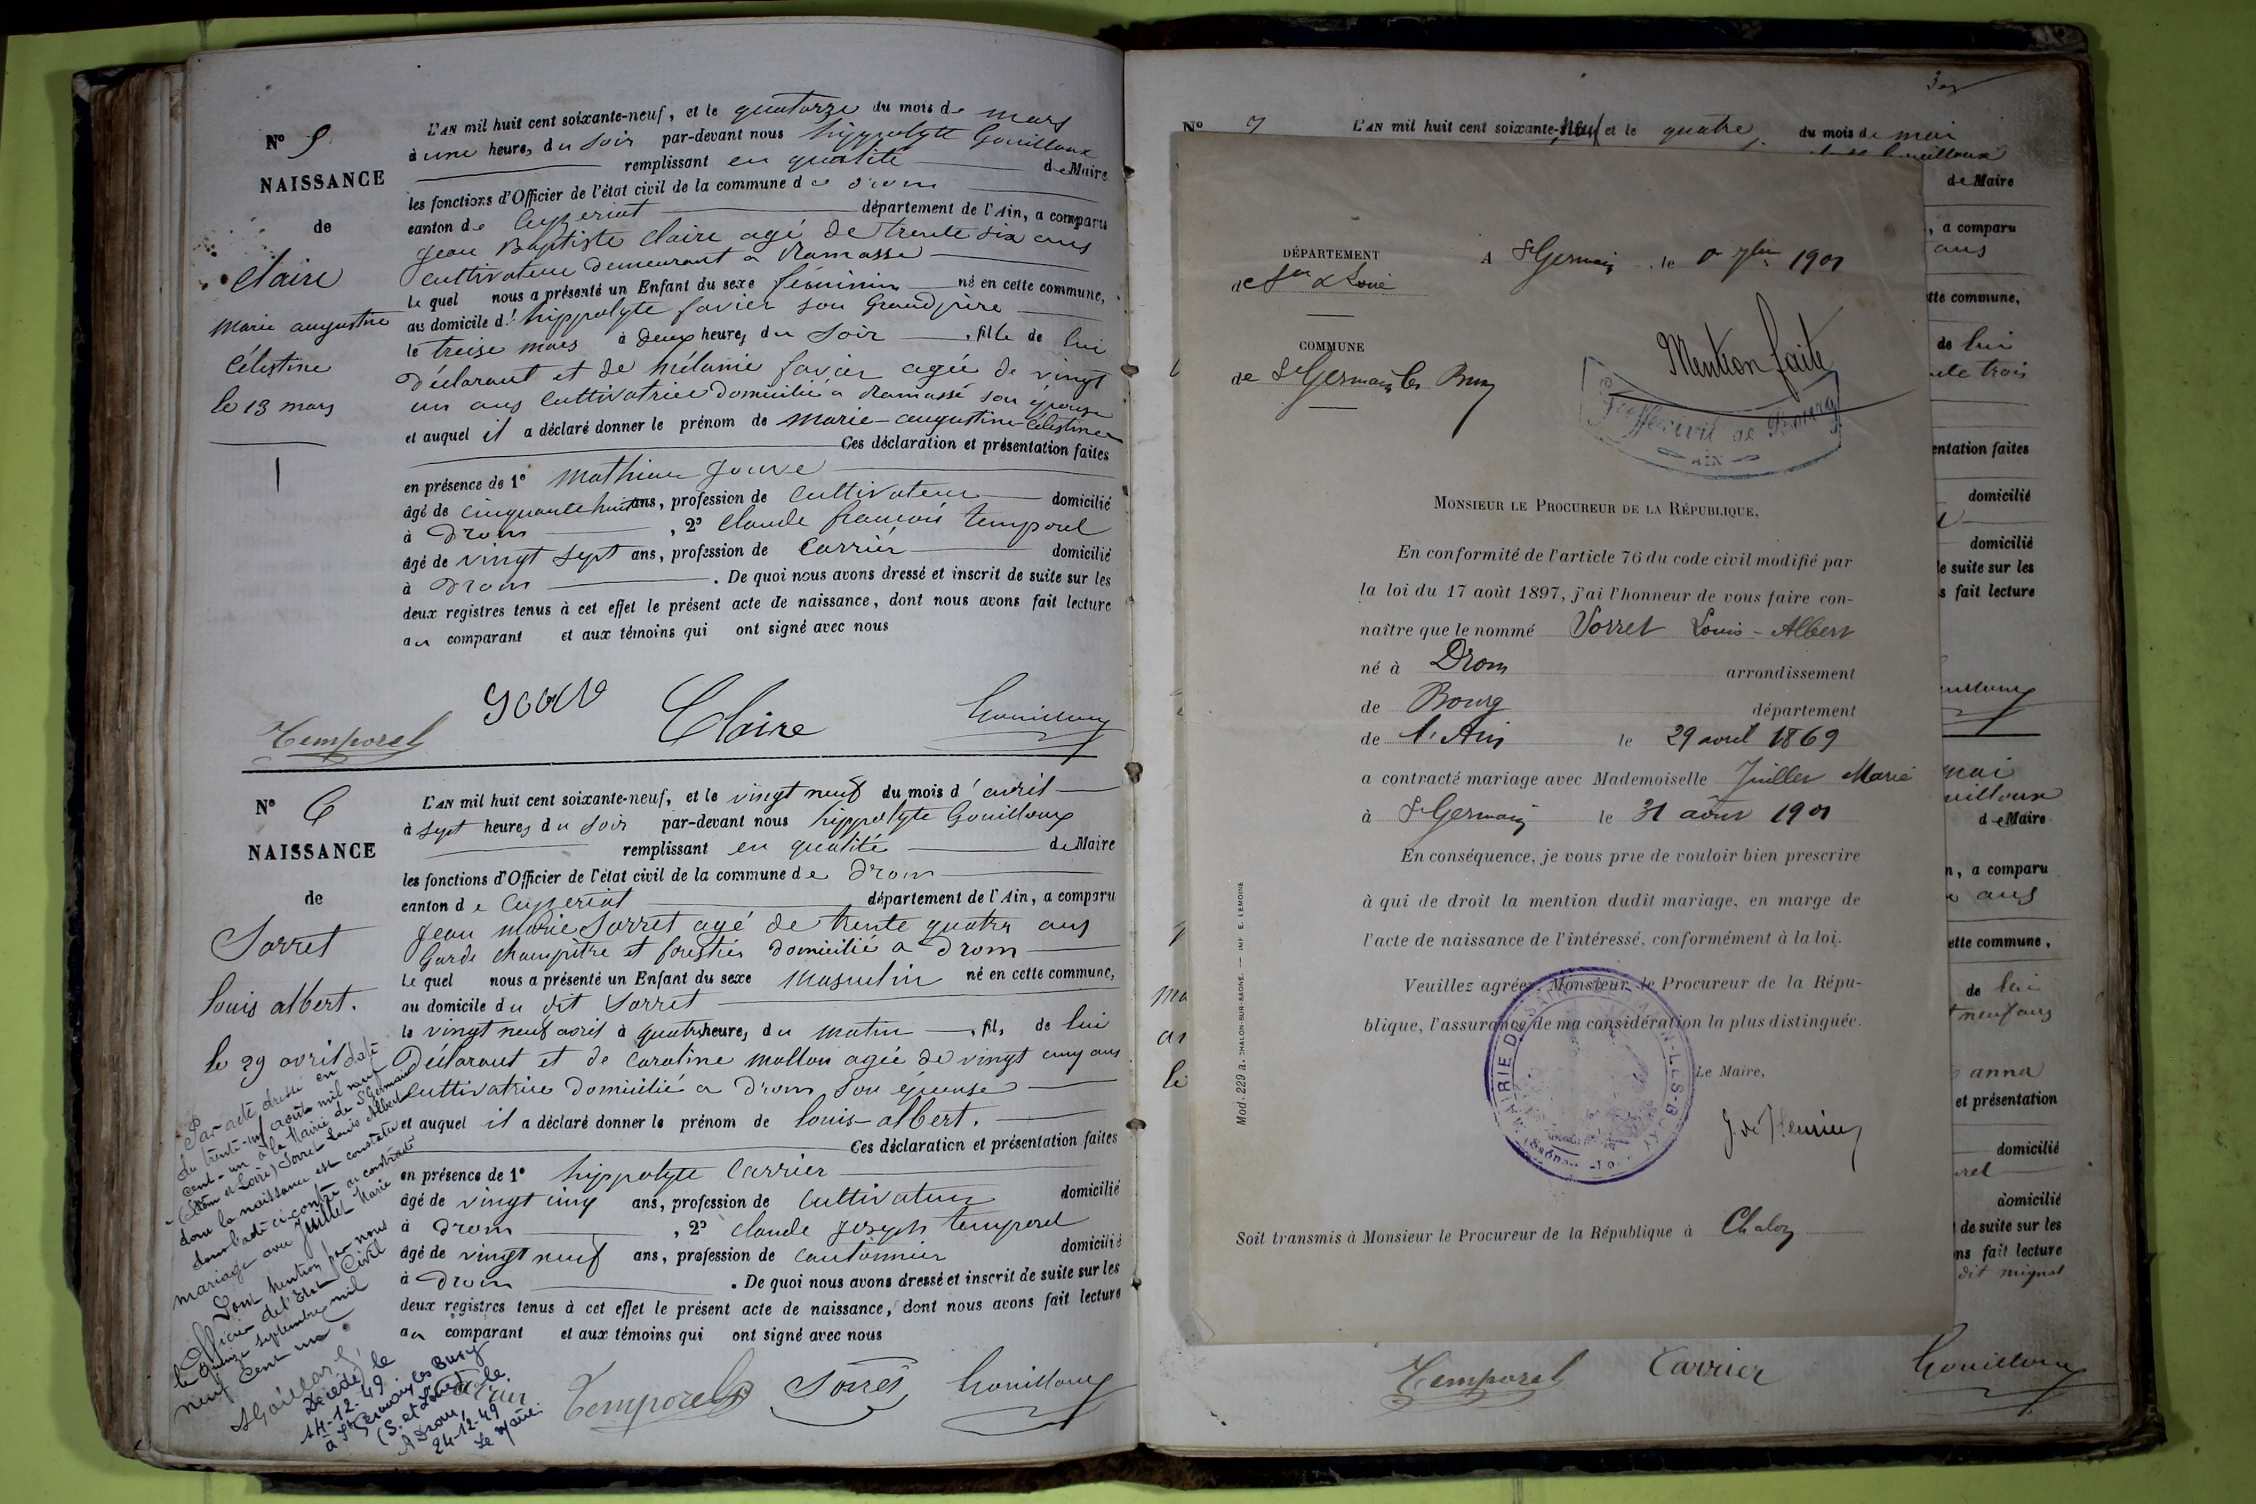 N° 5
NAISSANCE
de
Claire
Marie augustine
Célestine
le 13 mars
L'AN mil huit cent soixante-neuf, et le quatorze du mois de mars
à une heure, du soir par-devant nous hippolyte Gouilloux
remplissant en qualité de Maire
les fonctions d'Officier de l'état civil de la commune de drom
canton de Ceyzeriat département de l'Ain, a comparu
Jean Baptiste Claire agé de trente six ans
Cultivateur demeurant a Ramasse
Le quel nous a présenté un Enfant du sexe féminin né en cette commune,
au domicile d' hippolyte favier son Grand père
le treise mars à deux heures du soir, fille de lui
Déclarant et de mélanie favier agée de vingt
un ans Cultivatrice domicilié a Ramasse son épouse
et auquel il a déclaré donner le prénom de Marie-augustine-Célestine
Ces déclaration et présentation faites
en présence de 1° Mathieu Jouve
âgé de cinquante huit ans, profession de Cultivateur domicilié
à Drom, 2° Claude françois temporel
âgé de vingt sept ans, profession de Carrier domicilié
à Drom. De quoi nous avons dressé et inscrit de suite sur les
deux registres tenus à cet effet le présent acte de naissance, dont nous avons fait lecture
au comparant et aux témoins qui ont signé avec nous
Temporel Claire Gouilloux
N° 6
NAISSANCE
de
Sorret
louis albert.
le 29 avril
L'AN mil huit cent soixante-neuf, et le vingt neuf du mois d'avril
à sept heures du soir par-devant nous hippolyte Gouilloux
remplissant en qualité de Maire
les fonctions d'Officier de l'état civil de la commune de Drom
canton de Ceyzeriat département de l'Ain, a comparu
Jean Marie Sorret agé de trente quatre ans
Garde champêtre et forestier domicilié a Drom
Le quel nous a présenté un Enfant du sexe masculin né en cette commune,
au domicile du dit Sorret
le vingt neuf avril à quatre heures du matin, fils de lui
Déclarant et de Caroline mollon agée de vingt cinq ans
Cultivatrice domicilié a Drom son épouse
et auquel il a déclaré donner le prénom de louis-albert.
Ces déclaration et présentation faites
en présence de 1° hippolyte Carrier
âgé de vingt cinq ans, profession de Cultivateur domicilié
à Drom, 2° Claude Joseph temporel
âgé de vingt neuf ans, profession de cantonnier domicilié
à Drom. De quoi nous avons dressé et inscrit de suite sur les
deux registres tenus à cet effet le présent acte de naissance, dont nous avons fait lecture
au comparant et aux témoins qui ont signé avec nous
Temporel Sorret Gouilloux
Par acte dressé en date
du trente-un août mil neuf
cent-un à la Mairie de St Germain
(Saône et Loire) Sorret Louis Albert
dont la naissance est constatée
dans l'acte ci-contre a contracté
mariage avec Juillet Marie
Dont Mention par nous
Officier de l'Etat Civil
le quinze septembre mil
neuf cent un.
Décédé le
14-12-49
à St Germain les Buxy
(S. et Loire)
A Drom, le
24-12-49
Le Maire.
N° 7
L'AN mil huit cent soixante-neuf et le quatre du mois de mai
de Maire
, a comparu
ans
tte commune,
de lui
trois
entation faites
domicilié
domicilié
e suite sur les
s fait lecture
DÉPARTEMENT
de Sne & Loire
COMMUNE
de St Germain les Buxy
A St Germain, le 7bre 1901
Mention faite
Greffe civil de Bourg
AIN
MONSIEUR LE PROCUREUR DE LA RÉPUBLIQUE,
En conformité de l'article 76 du code civil modifié par
la loi du 17 août 1897, j'ai l'honneur de vous faire con-
naître que le nommé Sorret Louis-Albert
né à Drom arrondissement
de Bourg département
de l'Ain le 29 avril 1869
a contracté mariage avec Mademoiselle Juillet Marie
à St Germain le 31 août 1901
En conséquence, je vous prie de vouloir bien prescrire
à qui de droit la mention dudit mariage, en marge de
l'acte de naissance de l'intéressé, conformément à la loi.
Veuillez agréer, Monsieur le Procureur de la Répu-
blique, l'assurance de ma considération la plus distinguée.
Le Maire,
Soit transmis à Monsieur le Procureur de la République à Chalon
Mod. 229 a. CHALON-SUR-SAONE. — IMP. E. LEMOINE
mai
de Maire
n, a comparu
ans
ette commune,
de lui
neuf ans
anna
et présentation
domicilié
domicilié
de suite sur les
ns fait lecture
dit mignot
Temporel Carrier Gouilloux